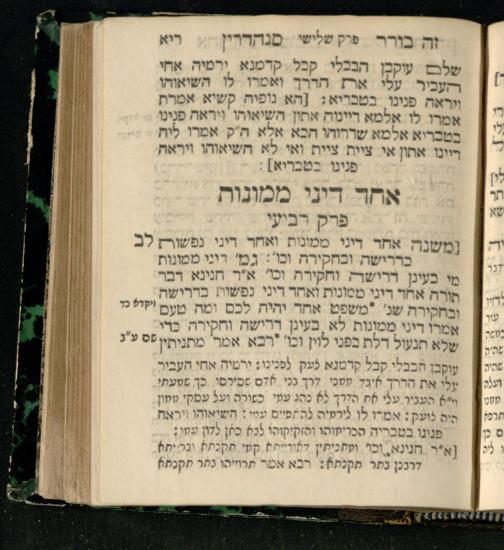 זה בורר פרק שלישי סנהדרין ריא
שלם עוקבן הבבלי קבל קדמנא ירמיה אחי
העביר עלי את הדרך ואמרו לו השיאוהו
ויראה פנינו בטבריא: [הא גופיה קשיא אמרת
אמרו לו אלמא דיינוה אתון השיאוהו ויראה פנינו
בטבריא אלמא שדרוהו הכא אלא ה"ק אמרו ליה
דיינו אתון אי ציית ציית ואי לא השיאוהו ויראה
פנינו בטבריא]:
אחד דיני ממונות
פרק רביעי
[משנה אחד דיני ממונות ואחד דיני נפשות לב
בדרישה ובחקירה וכו': גמ' דיני ממונות
מי בעינן דרישה וחקירה וכו' א"ר חנינא דבר
תורה אחד דיני ממונות ואחד דיני נפשות בדרישה
ובחקירה שנ' *משפט אחד יהיה לכם ומה טעם
ויקרא כד
אמרו דיני ממונות לא בעינן דרישה וחקירה כדי
שלא תנעול דלת בפני לוין וכו' *רבא אמר מתניתין
שם ע"ב
עוקבן הבבלי קבל קדמנא לעק לפנינו: ירמיה אחי העביר
עלי את הדרך איבד ממני דרך בני אדם שסירסו כך שמעתי
וי"א העביר עלי את הדרך לא נהג עמי כשורה ועל עסקי ממון
היה לועק: אמרו לו לירמיה להתפייס עמו: השיאוהו ויראה
פנינו בטבריה הכריחוהו והזקיקוהו לבא כאן לדון עמו:
[א"ר חנינא וכו' ומתניתין דאורייתא קמי תקנתא וברייתא
דרבנן בתר תקנתא: רבא אמר תרוייהו בתר תקנתא